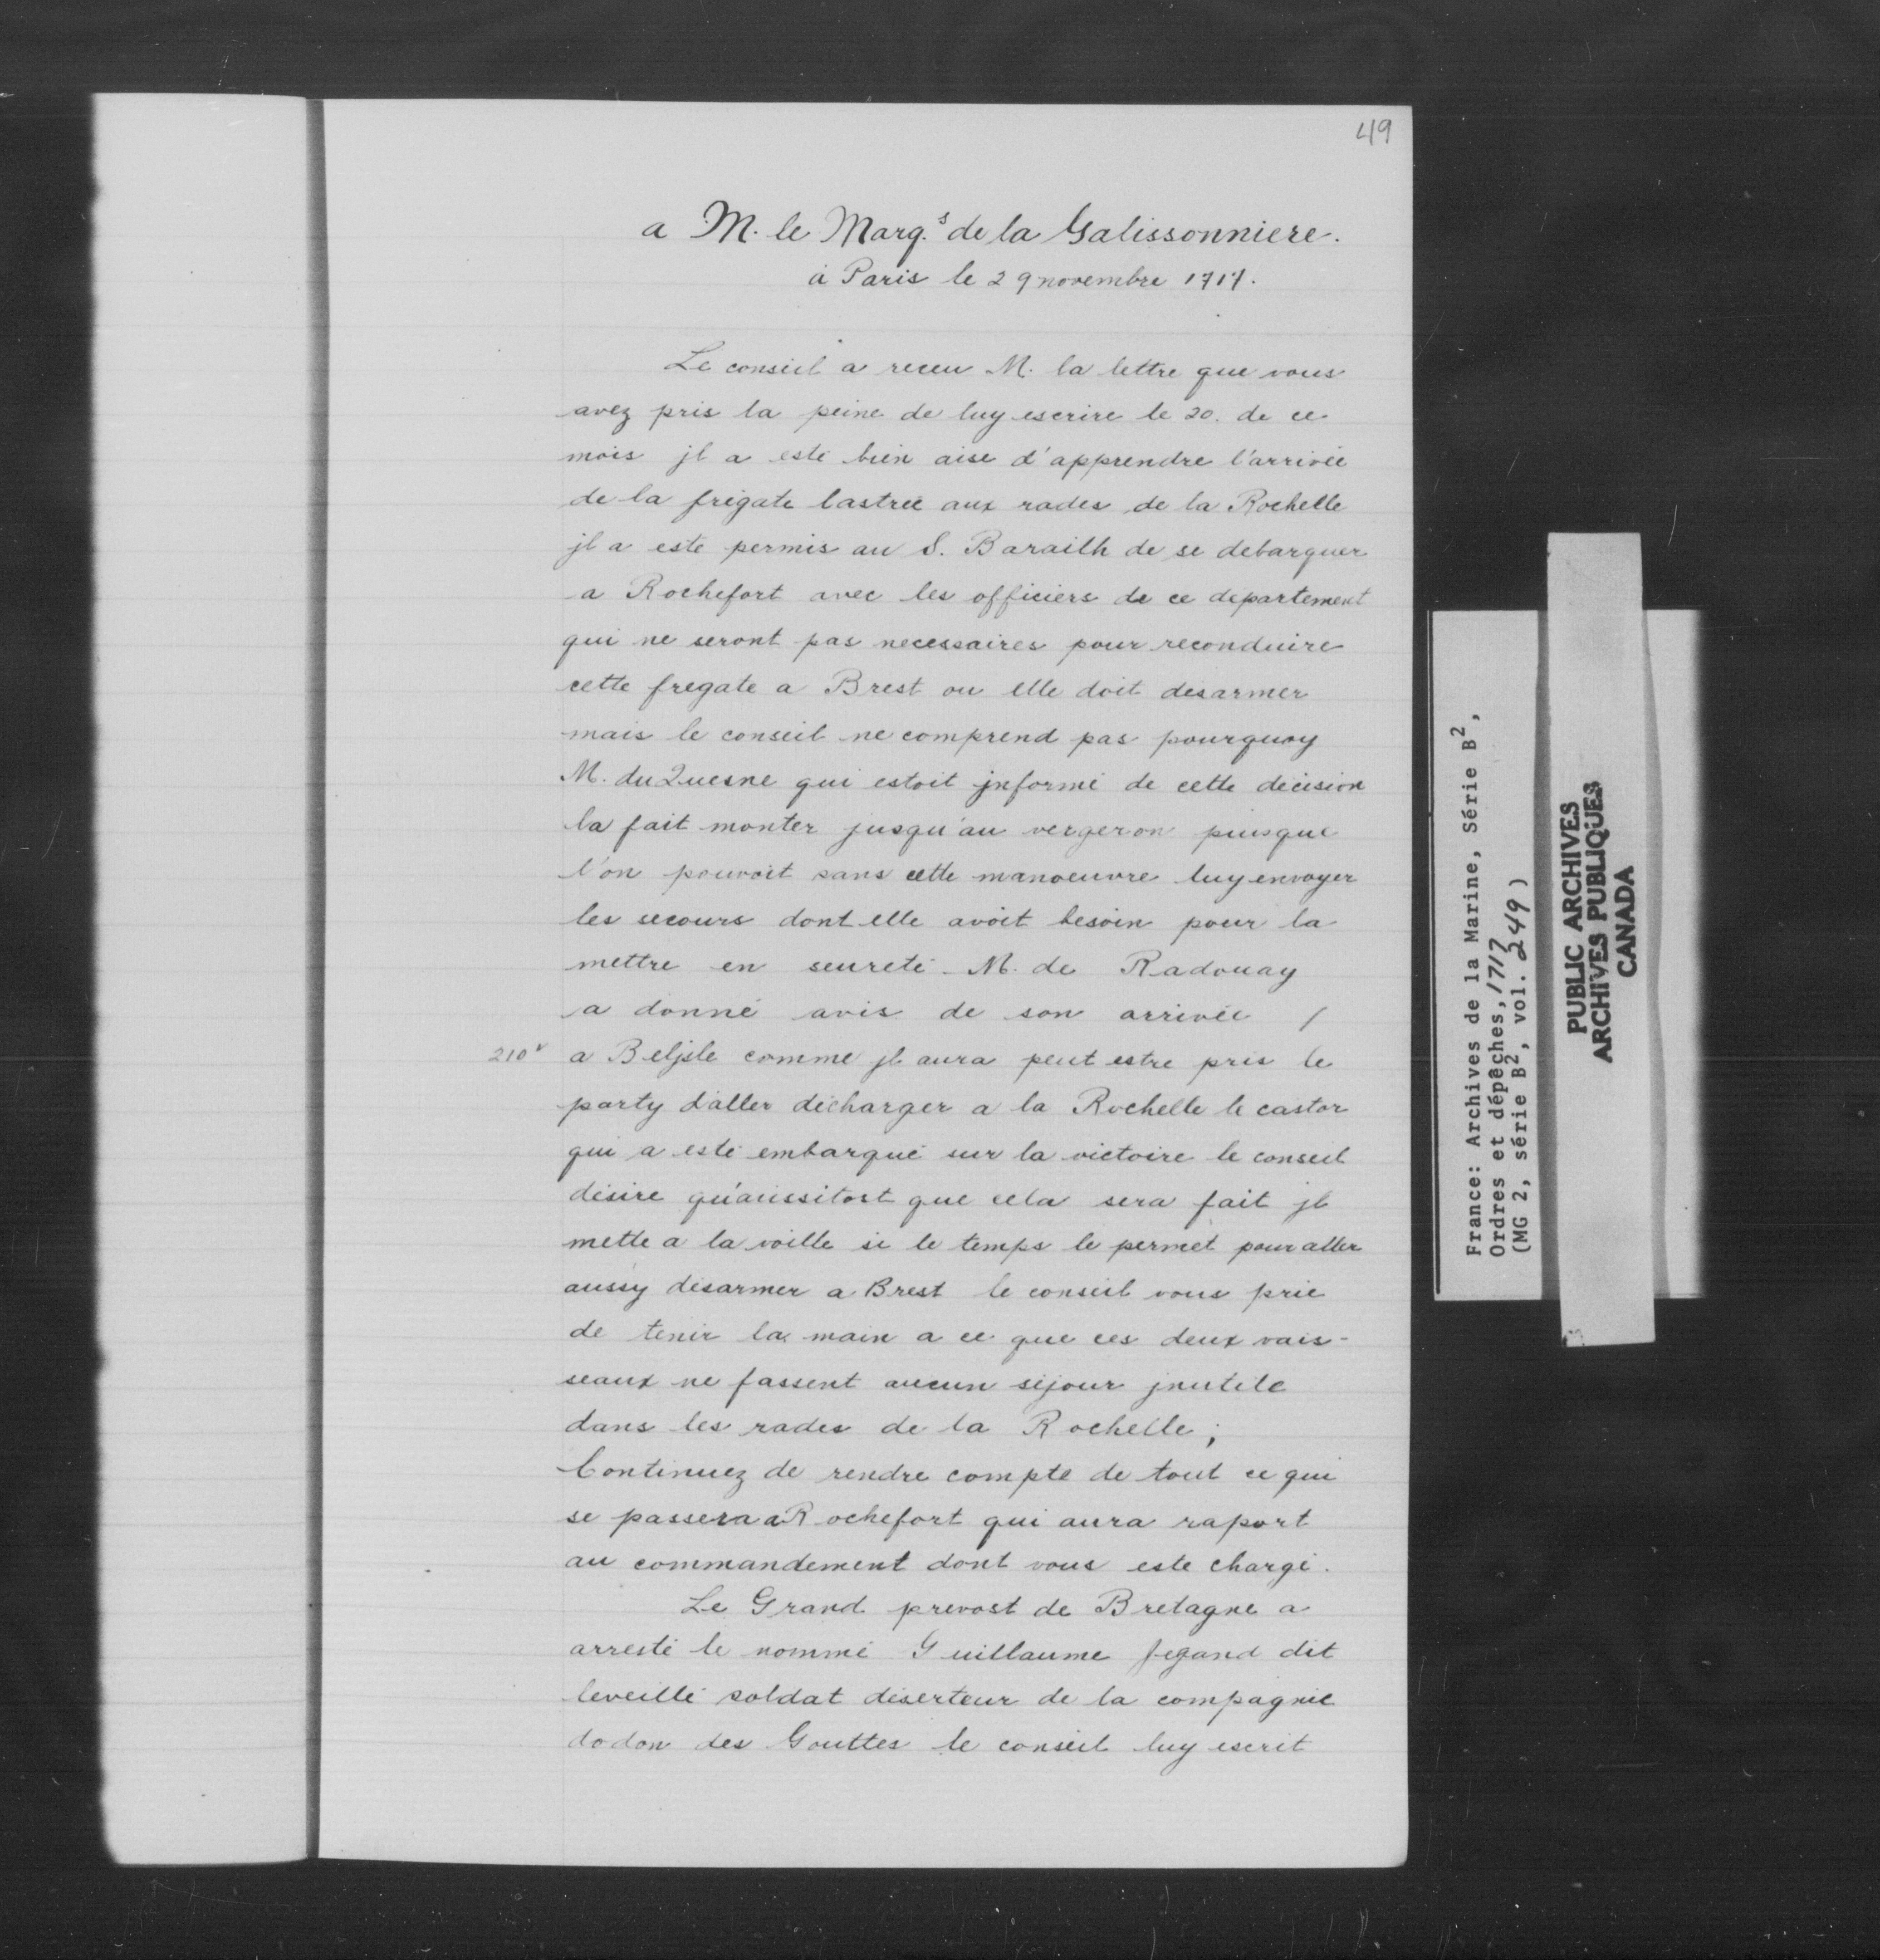 49
a M. le Marq.s de la Galissonniere.
à Paris le 29 novembre 1717.
Le conseil a receu M. la lettre que vous
avez pris la peine de luy escrire le 20. de ce
mois jl a esté bien aise d'apprendre l'arrivée
de la frégate lastrée aux rades de la Rochelle
jl a esté permis au S. Barailh de se debarquer
a Rochefort avec les officiers de ce departement
qui ne seront pas necessaires pour reconduire
cette fregate a Brest ou elle doit désarmer
mais le conseil ne comprend pas pourquoy
M. du Quesne qui estoit jnformé de cette décision
la fait monter jusqu'au vergeron puisque
l'on pouvoit sans cette manoeuvre luy envoyer
les secours dont elle avoit besoin pour la
mettre en seureté M. de Radouay
a donné avis de son arrivée /
210v a Beljsle comme jl aura peut estre pris le
party d'aller décharger a la Rochelle le castor
qui a esté embarqué sur la victoire le conseil
désire qu'aussitost que cela sera fait jl
mette a la voille si le temps le permet pour aller
aussy désarmer a Brest le conseil vous prie
de tenir la main a ce que ces deux vais-
seaux ne fassent aucun séjour jnutile
dans les rades de la Rochelle ;
Continuez de rendre compte de tout ce qui
se passera a Rochefort qui aura raport
au commandement dont vous este chargé.
Le Grand prevost de Bretagne a
arresté le nommé Guillaume Jegand dit
leveillé soldat déserteur de la compagnie
dodon des Gouttes le conseil luy escrit
France: Archives de la Marine, Série B2,
Ordres et dépêches, 1717
(MG 2, série B2, vol. 249)
PUBLIC ARCHIVES
ARCHIVES PUBLIQUES
CANADA